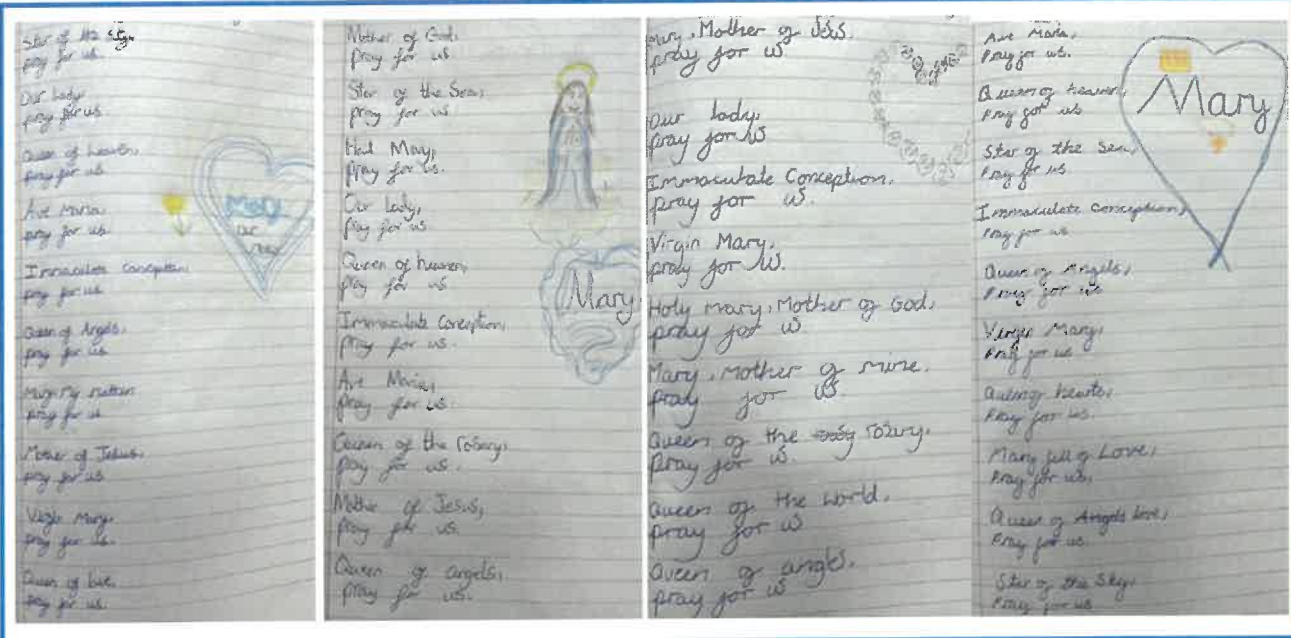 Star of the
pray for us.
Our Lady
pray for us
Queen of heaven,
pray for us.
Ave Maria
pray for us
Immaculate Conception
pray for us.
Queen of Angels,
pray for us.
Mary my
pray for us
Mother of Jesus,
pray for us
Virgin Mary,
pray for us.
Queen of love,
pray for us.
Mary
Mother of God,
pray for us.
Star of the Sea,
pray for us
Hail Mary,
pray for us.
Our Lady,
Pray for us
Queen of heaven,
pray for us.
Immaculate Conception,
pray for us.
Ave Maria,
pray for us.
Queen of the rosary,
pray for us.
Mother of Jesus,
pray for us.
Queen of angels,
pray for us.
Mary
Mary, Mother of Jesus.
pray for us
Our lady,
pray for us
Immaculate Conception,
pray for us.
Virgin Mary,
pray for us.
Holy mary, Mother of God,
pray for us
Mary, mother of mine.
pray for us.
Queen of the rosary.
pray for us.
Queen of the world.
pray for us
Queen of angles.
pray for us
Ave Maria,
Pray for us.
Queen of heaven,
Pray for us
Star of the Sea,
Pray for us
Immaculate Conception,
Pray for us
Queen of Angels,
Pray for us
Virgin Mary,
Pray for us
Queen of hearts,
Pray for us.
Mary full of Love,
Pray for us,
Queen of Angels love,
Pray for us
Star of the Sky,
Pray for us
Mary